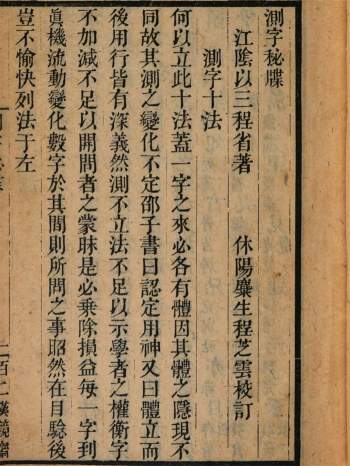 測字秘牒
江陰以三程省著 休陽麋生程芝雲校訂
測字十法
何以立此十法蓋一字之來必各有體因其體之隱現不
同故其測之變化不定邵子書曰認定用神又曰體立而
後用行皆有深義然測不立法不足以示學者之權衡字
不加減不足以開問者之蒙昧是必乗除損益每一字到
眞機流動變化數字於其間則所問之事昭然在目騐後
豈不愉快列法于左
二百二漢鏡齋